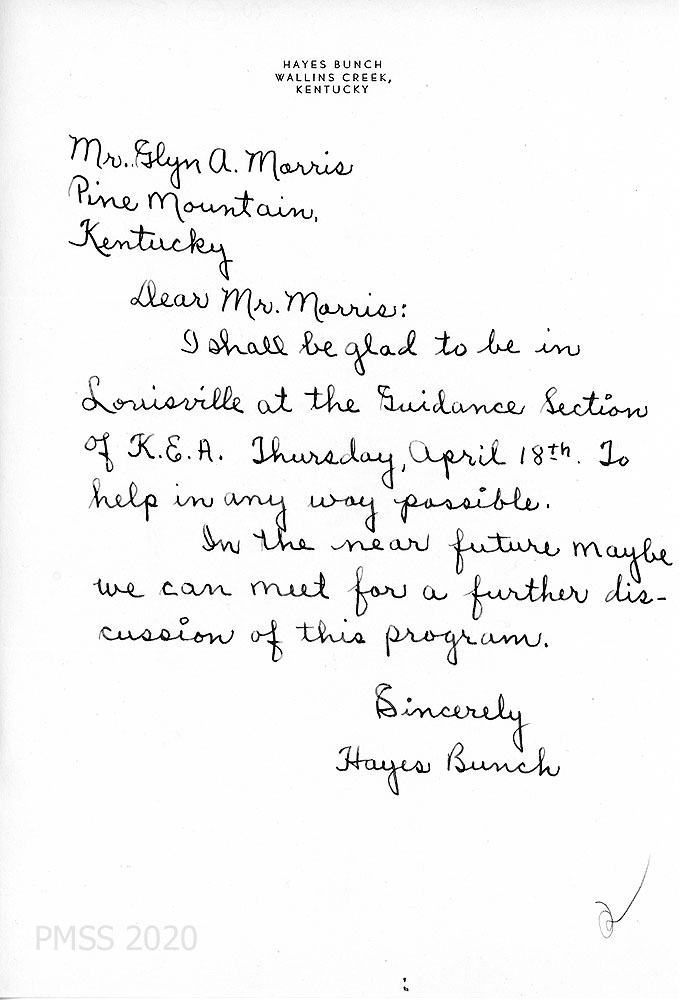 HAYES BUNCH
WALLINS CREEK,
KENTUCKY
Mr. Glyn A. Morris
Pine Mountain,
Kentucky
Dear Mr. Morris:
I shall be glad to be in
Louisville at the Guidance Section
of K.E.A. Thursday, April 18th. To
help in any way possible.
In the near future maybe
we can meet for a further dis-
cussion of this program.
Sincerely
Hayes Bunch
PMSS 2020